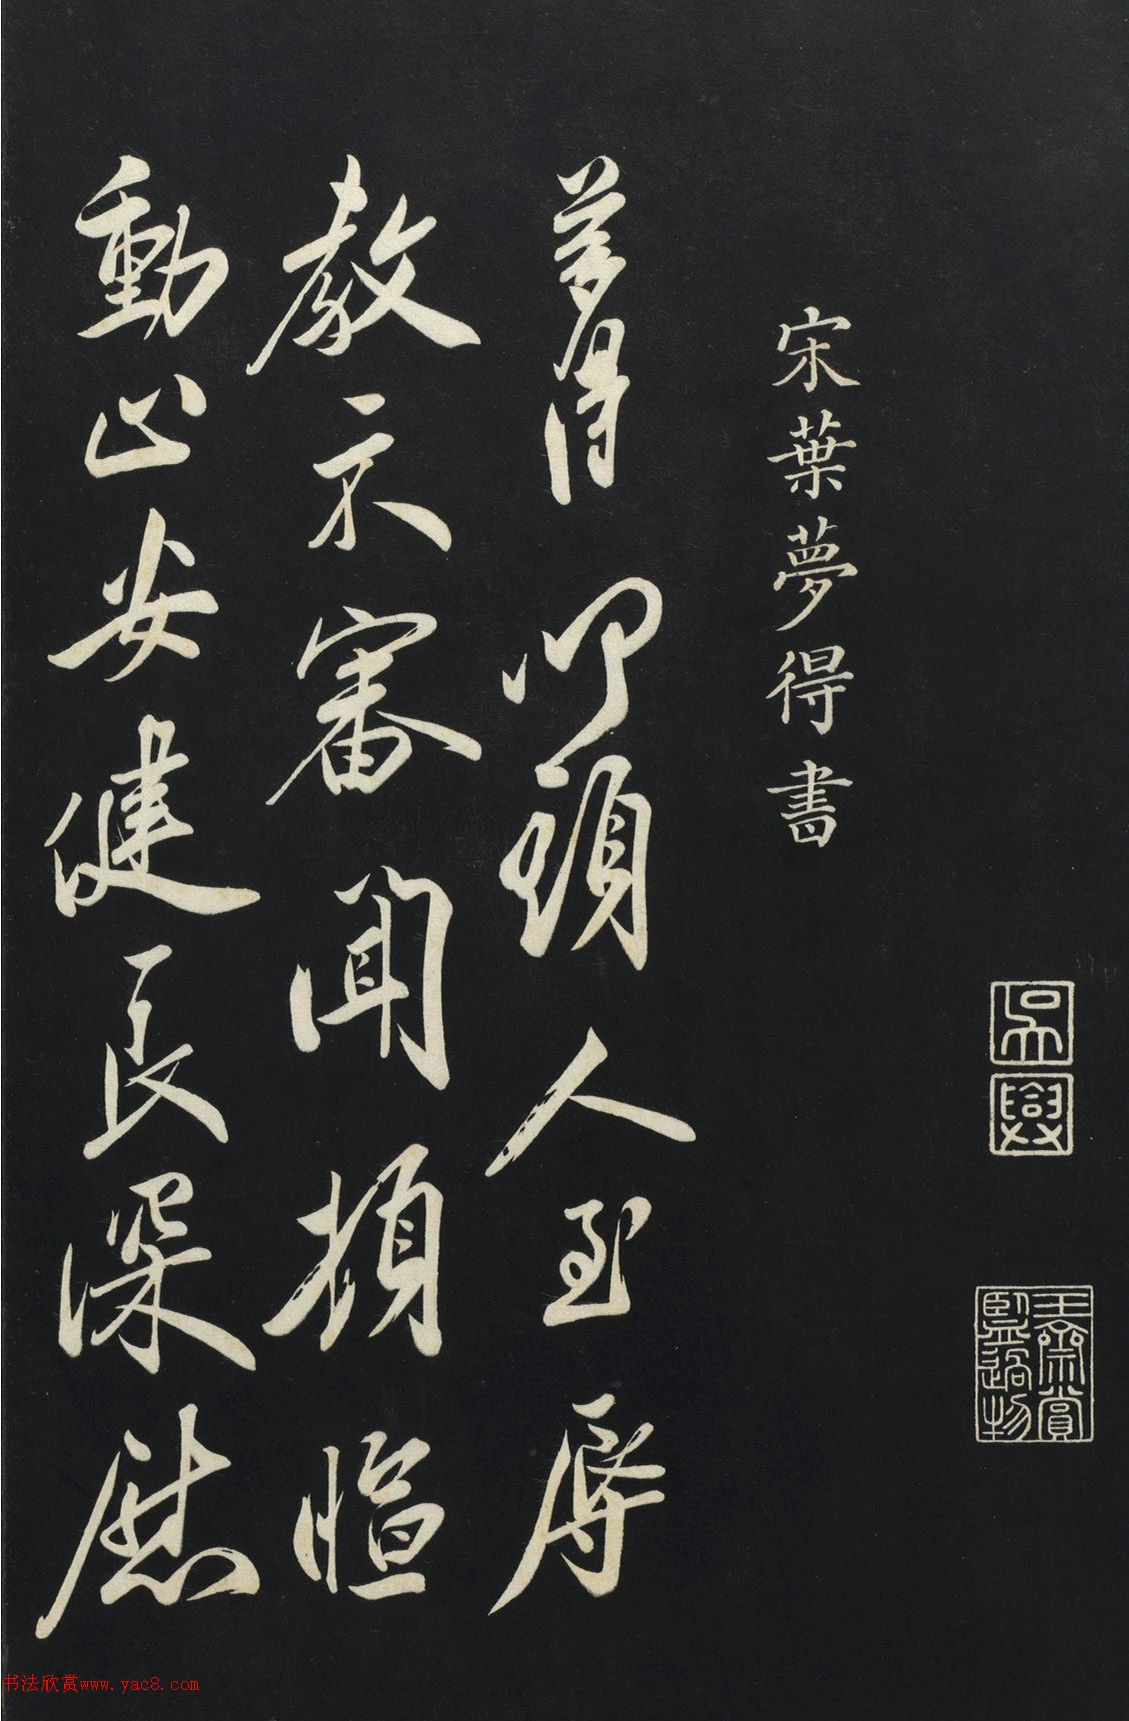 宋葉夢得書
夢得 叩頭人至辱
教示審聞
動止安健良深慰
吳興
书法欣赏www.yac8.com